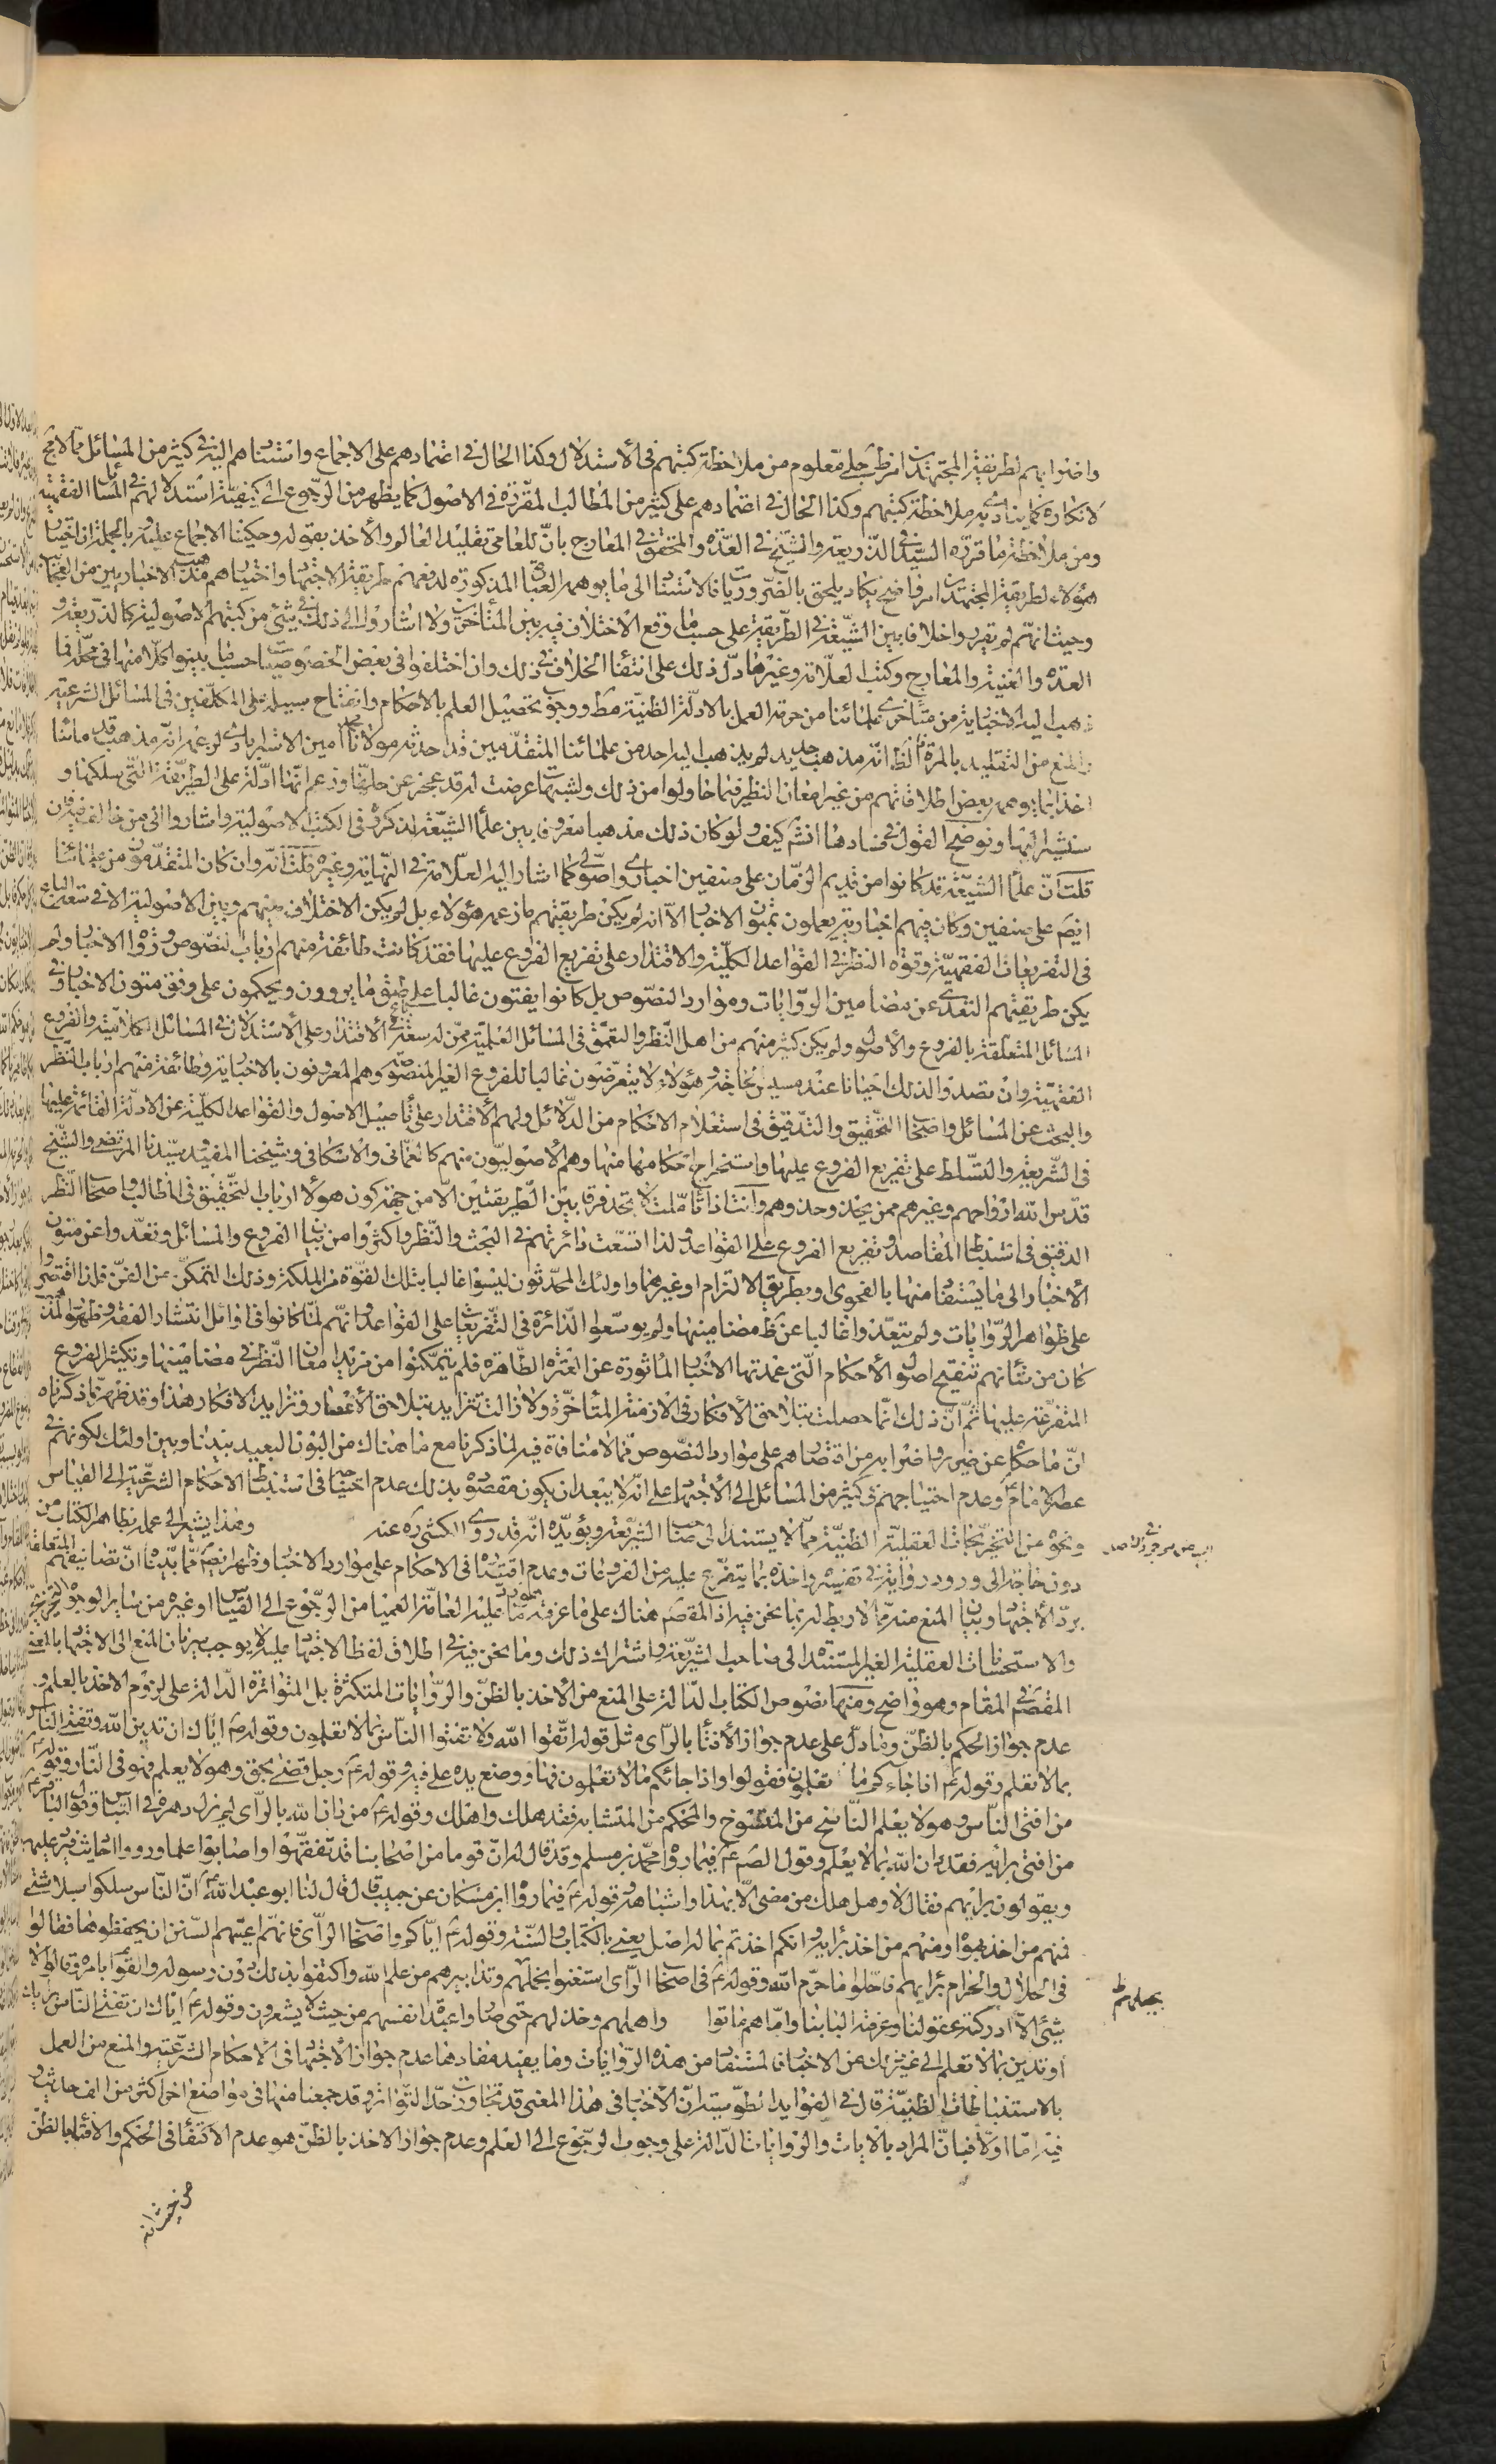 واختوا بهم لطريقة المجتهدين امر ظ جلي معلوم من ملاحظة كتبهم في الاستدلال وكذا الحال في اعتمادهم على الاجماع واستنادهم اليه في كثير من المسائل مما لا مجال
لانكاره كما ينادي به ملاحظة كتبهم وكذا الحال في اعتمادهم على كثير من المطالب المقررة في الاصول كما يظهر من الرجوع الى كيفية استدلالهم في المسائل الفقهية
ومن ملاحظة ما قرره السيد في الذريعة والشيخ في العدة والمحقق في المعارج بان للعامي تقليد العالم والأخذ بقوله وحكينا الاجماع عليه وبالجملة ان اختيار
هؤلاء لطريقة المجتهدين امر واضح يكاد يلحق بالضروريات فالاستناد الى ما يوهمه العبارة المذكورة لدفعهم طريقة الاجتهاد واختيارهم مذهب الاخباريين من الغرائب
وحيث انهم لم يقرروا خلافا بين الشيعة في الطريقة على حسب ما وقع الاختلاف فيه بين المتأخرين ولا اشاروا الى ذلك في شئ من كتبهم الاصولية كالذريعة و
العدة والغنية والمعارج وكتب العلامة وغيرها دل ذلك على انتفاء الخلاف في ذلك وان اختلفوا في بعض الخصوصيات حسبما بينوا كلا منها في محله فما
ذهب اليه الاخبارية من متأخري علمائنا من حرمة العمل بالادلة الظنية مط ووجوب تحصيل العلم بالاحكام وانفتاح سبيله على المكلفين في المسائل الشرعية
والمنع من التقليد بالمرة الظ انه مذهب جديد لم يذهب اليه احد من علمائنا المتقدمين قد احدثه مولانا محمد امين الاسترابادي لزعمه انه مذهب قدمائنا
اخذا بما يوهمه بعض اطلاقاتهم من غير امعان النظر فيما حاولوا من ذلك ولشبهات عرضت له قد عجز عن حلها وزعم انها ادلة على الطريقة التي سلكها و
سنشير اليها ونوضح القول في فسادها انش كيف ولو كان ذلك مذهبا معروفا بين علماء الشيعة لذكروه في الكتب الاصولية واشاروا الى من خالف فيه فان
قلت ان علماء الشيعة قد كانوا من قديم الزمان على صنفين اخباري واصولي كما اشار اليه العلامة في النهاية وغيره قلت انه وان كان المتقدمون من علمائنا
ايضا على صنفين وكان فيهم اخبارية يعملون بمتون الاخبار الا انه لم يكن طريقتهم ما زعمه هؤلاء بل لم يكن الاختلاف بينهم وبين الاصولية الا في سعة الباع
في التفريعات الفقهية وقوة النظر في القواعد الكلية والاقتدار على تفريع الفروع عليها فقد كانت طائفة منهم ارباب النصوص ورواة الاخبار ولم
يكن طريقتهم التعدي عن مضامين الروايات وموارد النصوص بل كانوا يفتون غالبا على طبق ما يروون ويحكمون على وفق متون الاخبار في
المسائل المتعلقة بالفروع والأصول ولم يكن كثير منهم من اهل النظر والتعمق في المسائل العلمية ممن له سعة باع في الاقتدار على الاستدلال في المسائل الكلامية والفروع
الفقهية وان تصدوا لذلك احيانا عند مسيس الحاجة وهؤلاء لا يتعرضون غالبا للفروع الغير المنصوصة وهم المعروفون بالاخبارية وطائفة منهم ارباب النظر
والبحث عن المسائل واصحاب التحقيق والتدقيق في استعلام الاحكام من الدلائل ولهم الاقتدار على تأصيل الاصول والقواعد الكلية عن الادلة القائمة عليها
في الشريعة والتسلط على تفريع الفروع عليها واستخراج احكامها منها وهم الاصوليون منهم كالعماني والاسكافي وشيخنا المفيد وسيدنا المرتضى والشيخ
قدس الله ارواحهم وغيرهم ممن يحذو حذوهم وانت اذا تأملت لا تجد فرقا بين الطريقتين الا من جهة كون هؤلاء ارباب التحقيق في المطالب واصحاب النظر
الدقيق في استنباط المقاصد وتفريع الفروع على القواعد ولذا اتسعت دائرتهم في البحث والنظر واكثروا من بيان الفروع والمسائل وتعدوا عن متون
الأخبار الى ما يستفاد منها بالفحوى او بطريق الالتزام او غيرهما واولئك المحدثون ليسوا غالبا بتلك القوة من الملكة وذلك التمكن من الفن فلذا اقتصروا
على ظواهر الروايات ولم يتعدوا غالبا عن ظ مضامينها ولم يوسعوا الدائرة في التفريعات على القواعد وانهم لما كانوا في اوائل انتشار الفقه وظهور المذهب
كان من شأنهم تنقيح اصول الأحكام التي عمدتها الاخبار المأثورة عن العترة الطاهرة فلم يتمكنوا من مزيد امعان النظر في مضامينها وتكثير الفروع
المتفرعة عليها ثم ان ذلك انما حصلت بتلاحق الأفكار في الازمنة المتأخرة ولا زالت تتزايد بتلاحق الأعصار وتزايد الافكار هذا وقد ظهر مما ذكرناه
ان ما حكاه عن واضرابه من اقتصارهم على موارد النصوص مما لا منافاة فيه لما ذكرنا مع ما هناك من البون البعيد بيننا وبين اولئك لكونهم في
عصر الامام ع وعدم احتياجهم في كثير من المسائل الى الأجتهاد على انه لا يبعد ان يكون مقصوده بذلك عدم احتياجنا في استنباط الاحكام الشرعية الى القياس
ونحوه عن التخريجات العقلية الظنية مما لا يستند الى صاحب الشريعة ويؤيده انه قد روى الكشي ره عنه وهذا يشير الى عمله بظاهر الكتاب من
دون حاجة الى ورود رواية في تفسيره واخذه بما يتفرع عليه من الفروعات وعدم اقتصاره في الاحكام على موارد الاخبار وظهر ايضا مما بيناه ان تصانيفهم المتعلقة
برد الأجتهاد وبيان المنع منه مما لا ربط له بما نحن فيه اذ المقصود هناك على ما عرفت ما تداول عليه العامة العمياء من الرجوع الى القياس او غيره من سائر الوجوه التخريجية
والاستحسانات العقلية الغير المستندة الى صاحب الشريعة واشتراك ذلك وما نحن فيه في اطلاق لفظ الاجتهاد عليه لا يوجب سريان المنع الى الاجتهاد بالمعنى
المقصود في المقام وهو واضح ومنها نصوص الكتاب الدالة على المنع من الاخذ بالظن والروايات المتكثرة بل المتواترة الدالة على لزوم الاخذ بالعلم و
عدم جواز الحكم بالظن وما دل على عدم جواز الأفتاء بالرأى مثل قوله اتقوا الله ولا تفتوا الناس بما لا تعلمون وقوله ع اياك ان تدين الله وتفتي الناس
بما لا تعلم وقوله ع اذا جاءكم ما تعلمون فقولوا واذا جائكم ما لا تعلمون فها ووضع يده على فيه وقوله ع رجل قضى بحق وهو لا يعلم فهو في النار وقوله ع
من افتى الناس وهو لا يعلم الناسخ من المنسوخ والمحكم من المتشابه فقد هلك واهلك وقوله ع من دان الله بالرأى لم يزل دهره في التباس وقوله ع
من افتى برأيه فقد دان الله بما لا يعلم وقول الصم ع فيما رواه محمد بن مسلم وقد قال له ان قوما من اصحابنا قد تفقهوا واصابوا علما ورووا احاديث فيرد عليهم
ويقولون برأيهم فقال لا وهل هلك من مضى الا بهذا واشباهه وقوله ع فيما رواه ابن مسكان عن حبيب قال قال لنا ابو عبد الله ع ان الناس سلكوا سبلا شتى
فمنهم من اخذ بهواه ومنهم من اخذ برأيه وانكم اخذتم بما له اصل يعنى بالكتاب والسنة وقوله ع اياكم واصحاب الرأى فانهم اعيتهم السنن ان يحفظوها فقالوا
في الحلال والحرام برأيهم فاحلوا ما حرم الله وقوله ع في اصحاب الرأى استغنوا بجهلهم وتدابيرهم من علم الله واكتفوا بذلك دون رسوله والقوام بامره وقالوا لا
شئ الا ما ادركته عقولنا وعرفته البابنا واهملهم وخذلهم حتى صاروا عبدة انفسهم من حيث لا يشعرون وقوله ع اياك ان تفتي الناس برأيك
او تدين بما لا تعلم الى غير ذلك من الاخبار فالمستفاد من هذه الروايات وما يفيد مفادها عدم جواز الأجتهاد في الأحكام الشرعية والمنع من العمل
بالاستنباطات الظنية قال في الفوايد الطوسية ان الأخبار في هذا المعنى قد تجاوزت حد التواتر وقد جمعنا منها في مواضع اخر اكثر من الف حديث و
فيه اما اولا فبان المراد بالايات والروايات الدالة على وجوب الرجوع الى العلم وعدم جواز الاخذ بالظن هو عدم الاكتفاء في الحكم والافتاء بالظن
بجهلهم ظ